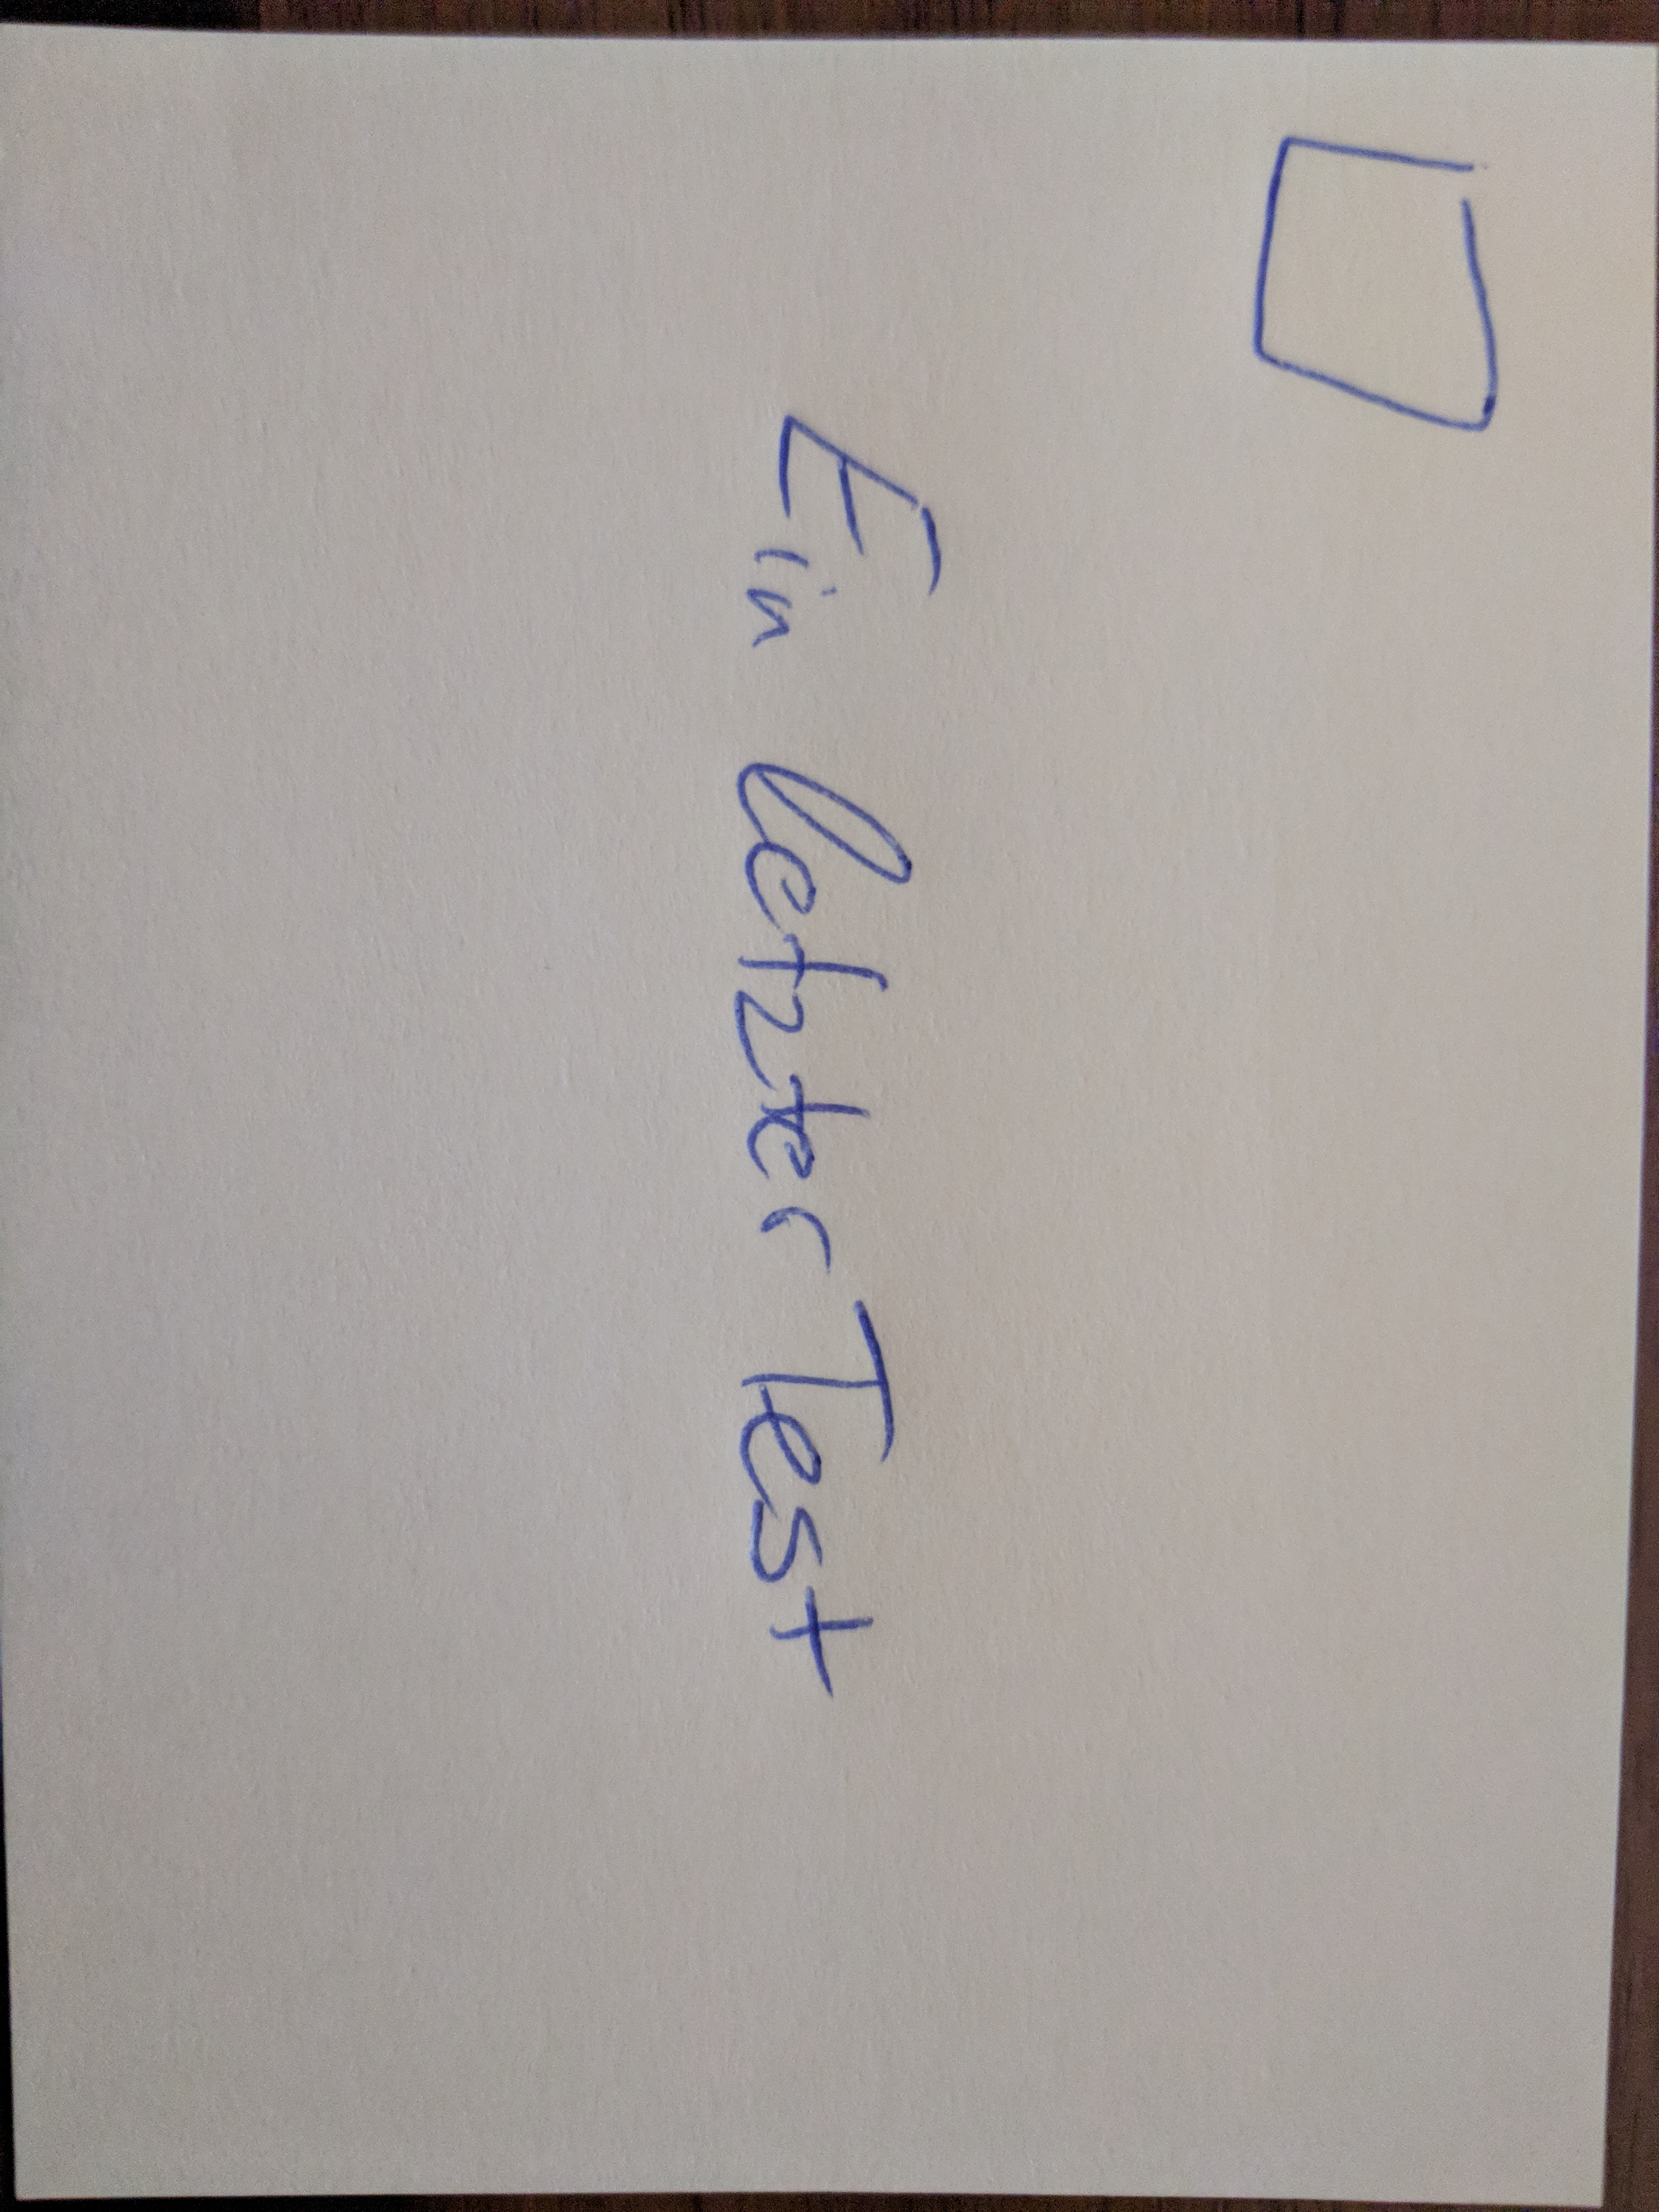 Ein letzter Test